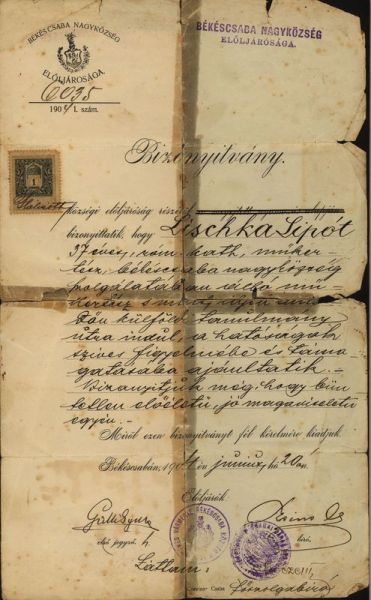 BÉKÉSCSABA NAGYKÖZSÉG
ELÖLJÁRÓSÁGA.
BÉKÉSCSABA NAGYKÖZSÉG
ELÖLJÁRÓSÁGA.
6035
1904 I. szám.
Bizonyitvány.
1
községi elöljáróság részéről
bizonyittatik, hogy Lischka Lipót
37 éves, róm. kath., műker-
tész, békéscsaba nagyközség
szolgálatában álló mű-
kertész
külföldi tanulmány
útra indul, a hatóságok
szives figyelmébe és támo-
gatásába ajánltatik. -
Bizonyitjuk még, hogy bün
tetlen előéletü, jó magaviseletü
egyén. -
Miről ezen bizonyitványt fél kérelmére kiadjuk.
Békéscsabán, 1904 én junius hó 20 án.
Elöljárók:
első jegyző. h.
biró.
Láttam:
főszolgabiró